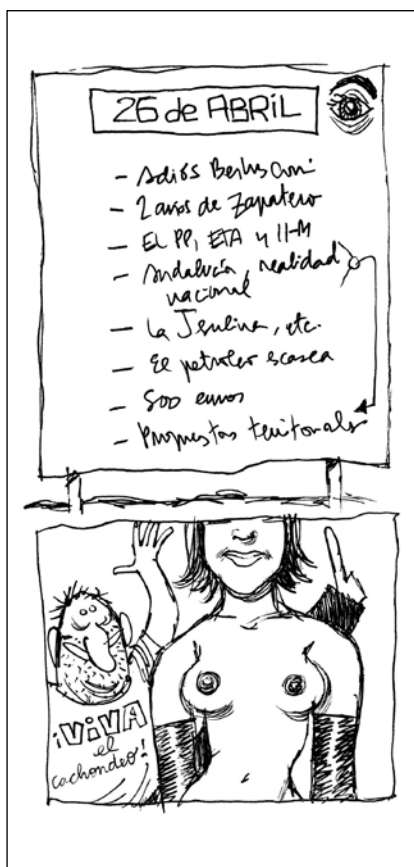 26 de ABRIL
- Adiós Berlusconi
- 2 años de Zapatero
- El PP, ETA y 11-M
- Andalucía, realidad
nacional
- La Jesulina, etc.
- El petroleo escasea
- 500 euros
- Propuestas territoriales
¡VIVA
el
cachondeo!